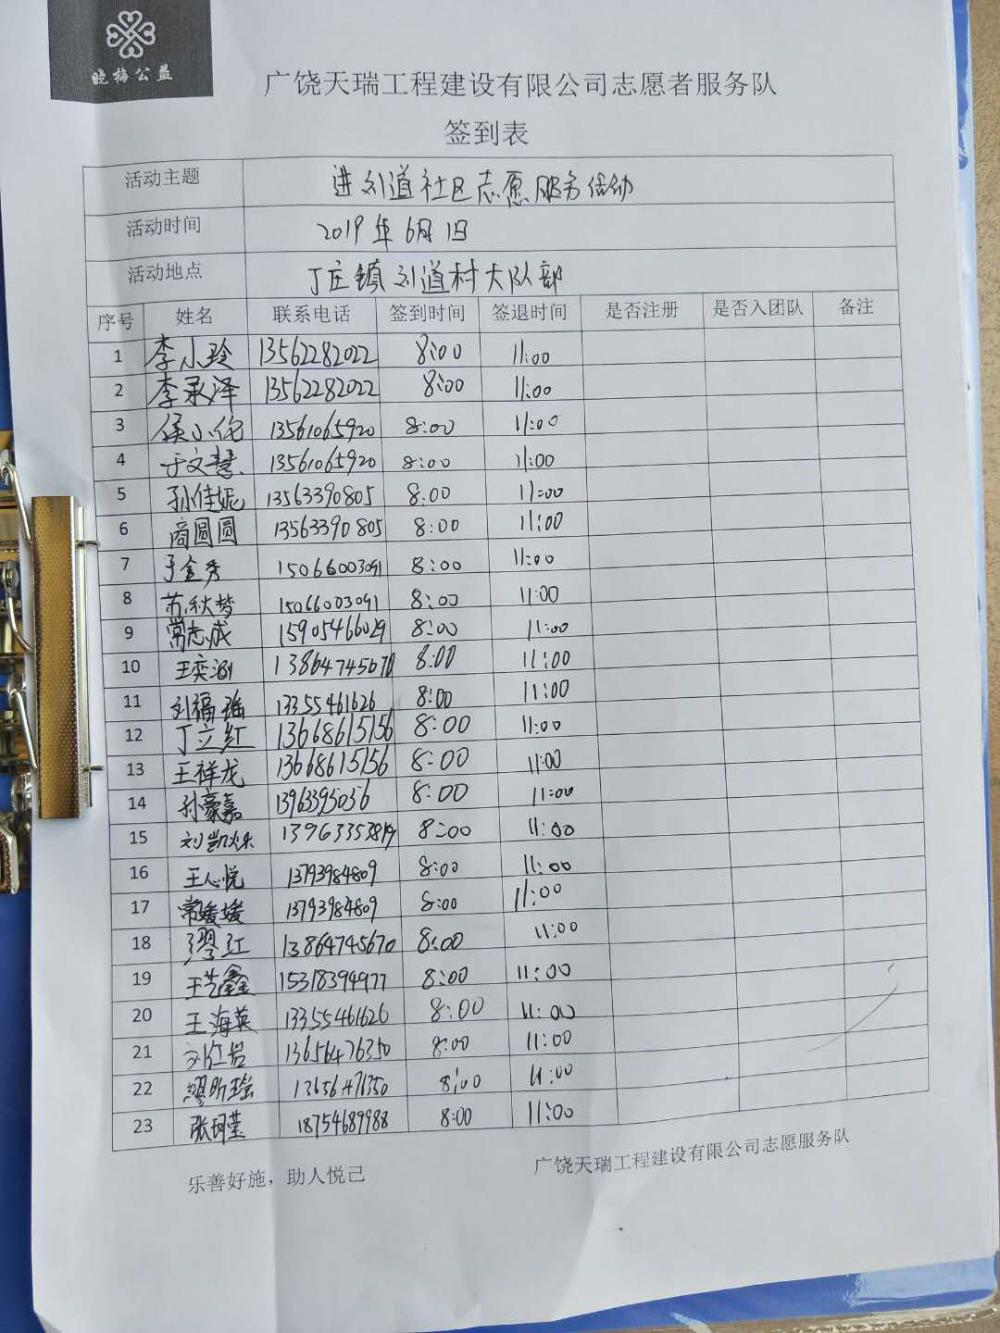 晓梅公益
广饶天瑞工程建设有限公司志愿者服务队
签到表
活动主题 进刘道社区志愿服务活动
活动时间 2019年6月1日
活动地点 丁庄镇刘道村大队部
序号 姓名 联系电话 签到时间 签退时间 是否注册 是否入团队 备注
1 李小玲 13562282022 8:00 11:00
2 李承泽 13562282022 8:00 11:00
3 侯小化 13561065920 8:00 11:00
4 于文慧 13561065920 8:00 11:00
5 孙佳妮 13563390805 8:00 11:00
6 商圆圆 13563390805 8:00 11:00
7 于金秀 15066003091 8:00 11:00
8 苏秋梦 15066003091 8:00 11:00
9 常志成 15905466029 8:00 11:00
10 王奕 13864745670 8:00 11:00
11 刘福瑶 13355461626 8:00 11:00
12 丁立红 13668615156 8:00 11:00
13 王祥龙 13668615156 8:00 11:00
14 孙豪嘉 1396395056 8:00 11:00
15 刘凯 13963353819 8:00 11:00
16 王心悦 13793984809 8:00 11:00
17 常媛媛 13793984809 8:00 11:00
18 缪红 13864745670 8:00 11:00
19 王艺鑫 15318394977 8:00 11:00
20 王海英 13355461626 8:00 11:00
21 刘红岩 13656476350 8:00 11:00
22 缪昕瑶 1365647350 8:00 11:00
23 张珂莹 18754689988 8:00 11:00
乐善好施，助人悦己
广饶天瑞工程建设有限公司志愿服务队